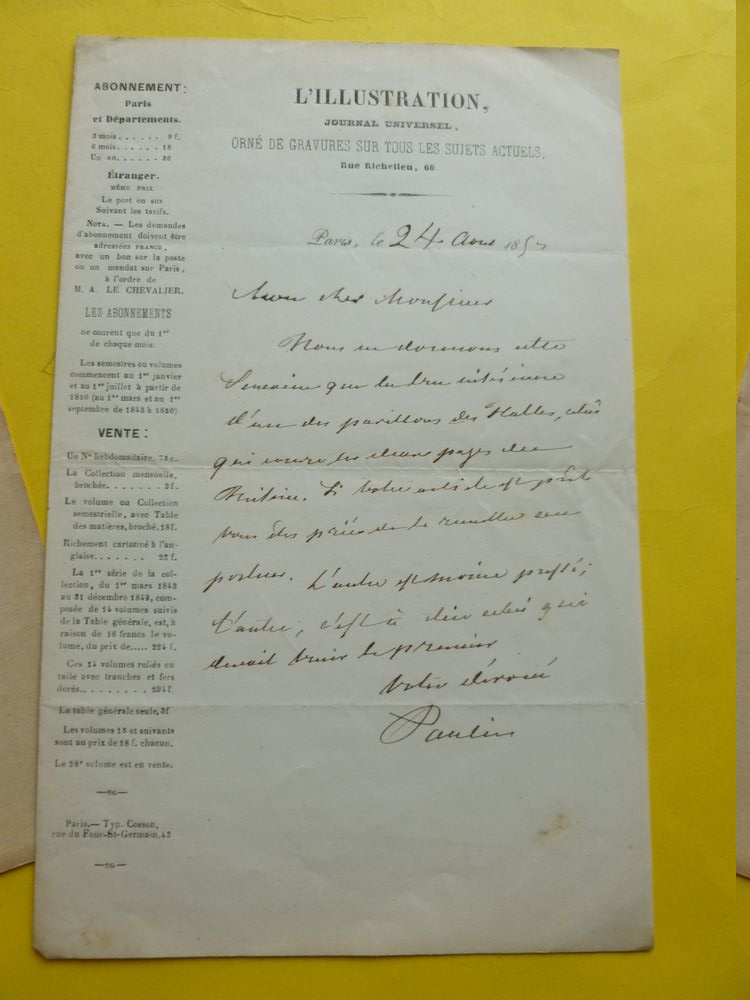 ABONNEMENT:
Paris
et Départements.
3 mois . . . . . . 9 f.
6 mois . . . . . . 18
Un an. . . . . . 36
Étranger.
MÊME PRIX
Le port en sus
Suivant les tarifs.
NOTA. — Les demandes
d'abonnement doivent être
adressées FRANCO,
avec un bon sur la poste
ou un mandat sur Paris,
à l'ordre de
M. A. LE CHEVALIER.
LES ABONNEMENTS
ne courent que du 1er
de chaque mois.
Les semestres ou volumes
commencent au 1er janvier
et au 1er juillet à partir de
1850 (au 1er mars et au 1er
septembre de 1843 à 1850)
VENTE:
Un No hebdomadaire, 75 c.
La Collection mensuelle,
brochée. . . . . . . . 3 f.
Le volume ou Collection
semestrielle, avec Table
des matières, broché. 18 f.
Richement cartonné à l'an-
glaise. . . . . . . 22 f.
La 1re série de la col-
lection, du 1er mars 1843
au 31 décembre 1849, com-
posée de 14 volumes suivis
de la Table générale, est, à
raison de 16 francs le vo-
lume, du prix de..... 224 f.
Ces 14 volumes reliés en
toile avec tranches et fers
dorés. . . . . . . . . 294 f.
La table générale seule, 3f
Les volumes 15 et suivants
sont au prix de 18 f. chacun.
Le 28e volume est en vente.
Paris.— Typ. Cosson,
rue du Four-St-Germain, 43
L'ILLUSTRATION,
JOURNAL UNIVERSEL,
ORNÉ DE GRAVURES SUR TOUS LES SUJETS ACTUELS,
Rue Richelieu, 60
Paris, le 24 Aout 1857
Mon cher Monsieur
Nous en donnons cette
Semaine que la vue intérieure
d'un des pavillons des Halles, celui
qui couvre les deux pages du
milieu. Si votre article est prêt
vous êtes prié de le remettre au
porteur. L'autre est moins pressé;
l'autre, c'est à dire celui qui
devait venir le premier
Votre dévoué
Paulin